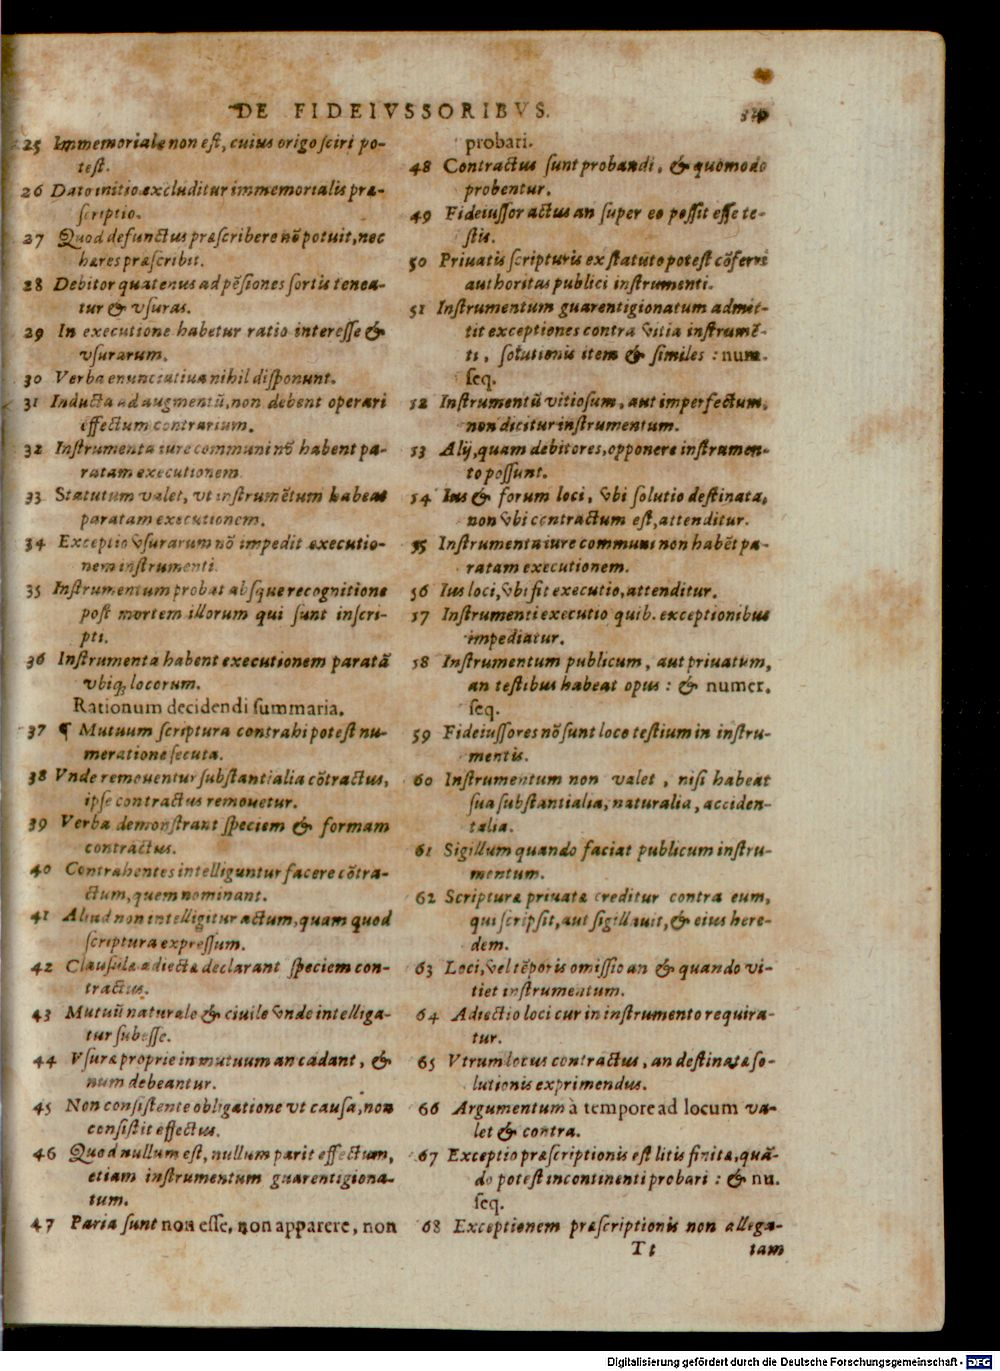 DE FIDEIVSSORIBVS.
25 Immemoriale non est, cuius origo sciri po-
test.
26 Dato initio excluditur immemorialis præ-
scriptio.
27 Quod defunctus præscribere nō potuit, nec
hæres præscribit.
28 Debitor quatenus ad pēsiones sortis tenea-
tur & vsuras.
29 In executione habetur ratio interesse &
vsurarum.
30 Verba enunciatiua nihil disponunt.
31 Inducta ad augmentū, non debent operari
effectum contrarium.
32 Instrumenta iure communi nō habent pa-
ratam executionem.
33 Statutum valet, vt instrumētum habeat
paratam executionem.
34 Exceptio vsurarum nō impedit executio-
nem instrumenti.
35 Instrumentum probat absque recognitione
post mortem illorum qui sunt inscri-
pti.
36 Instrumenta habent executionem paratā
vbiq; locorum.
Rationum decidendi summaria.
37 ¶ Mutuum scriptura contrahi potest nu-
meratione secuta.
38 Vnde remouentur substantialia cōtractus,
ipse contractus remouetur.
39 Verba demonstrant speciem & formam
contractus.
40 Contrahentes intelliguntur facere cōtra-
ctum, quem nominant.
41 Aliud non intelligitur actum, quam quod
scriptura expressum.
42 Clausulæ adiectæ declarant speciem con-
tractus.
43 Mutuū naturale & ciuile vnde intelliga-
tur subesse.
44 Vsuræ proprie in mutuum an cadant, &
num debeantur.
45 Non consistente obligatione vt causa, non
consistit effectus.
46 Quod nullum est, nullum parit effectum,
etiam instrumentum guarentigiona-
tum.
47 Paria sunt non esse, non apparere, non
probari.
48 Contractus sunt probandi, & quomodo
probentur.
49 Fideiussor actus an super eo possit esse te-
stis.
50 Priuatis scripturis ex statuto potest cōferri
authoritas publici instrumenti.
51 Instrumentum guarentigionatum admit-
tit exceptiones contra vitia instrumē-
ti, solutionis item & similes: num.
seq.
52 Instrumentū vitiosum, aut imperfectum,
non dicitur instrumentum.
53 Alij, quam debitores, opponere instrumen-
to possunt.
54 Ius & forum loci, vbi solutio destinata,
non vbi contractum est, attenditur.
55 Instrumenta iure communi non habēt pa-
ratam executionem.
56 Ius loci, vbi fit executio, attenditur.
57 Instrumenti executio quib. exceptionibus
impediatur.
58 Instrumentum publicum, aut priuatum,
an testibus habeat opus: & numer.
seq.
59 Fideiussores nō sunt loco testium in instru-
mentis.
60 Instrumentum non valet, nisi habeat
sua substantialia, naturalia, acciden-
talia.
61 Sigillum quando faciat publicum instru-
mentum.
62 Scripturæ priuatæ creditur contra eum,
qui scripsit, aut sigillauit, & eius here-
dem.
63 Loci, vel tēporis omissio an & quando vi-
tiet instrumentum.
64 Adiectio loci cur in instrumento requira-
tur.
65 Vtrum locus contractus, an destinatæ so-
lutionis exprimendus.
66 Argumentum à tempore ad locum va-
let & contra.
67 Exceptio præscriptionis est litis finitæ, quā-
do potest incontinenti probari: & nu.
seq.
68 Exceptionem præscriptionis non allega-
Tt tam
Digitalisierung gefördert durch die Deutsche Forschungsgemeinschaft - DFG